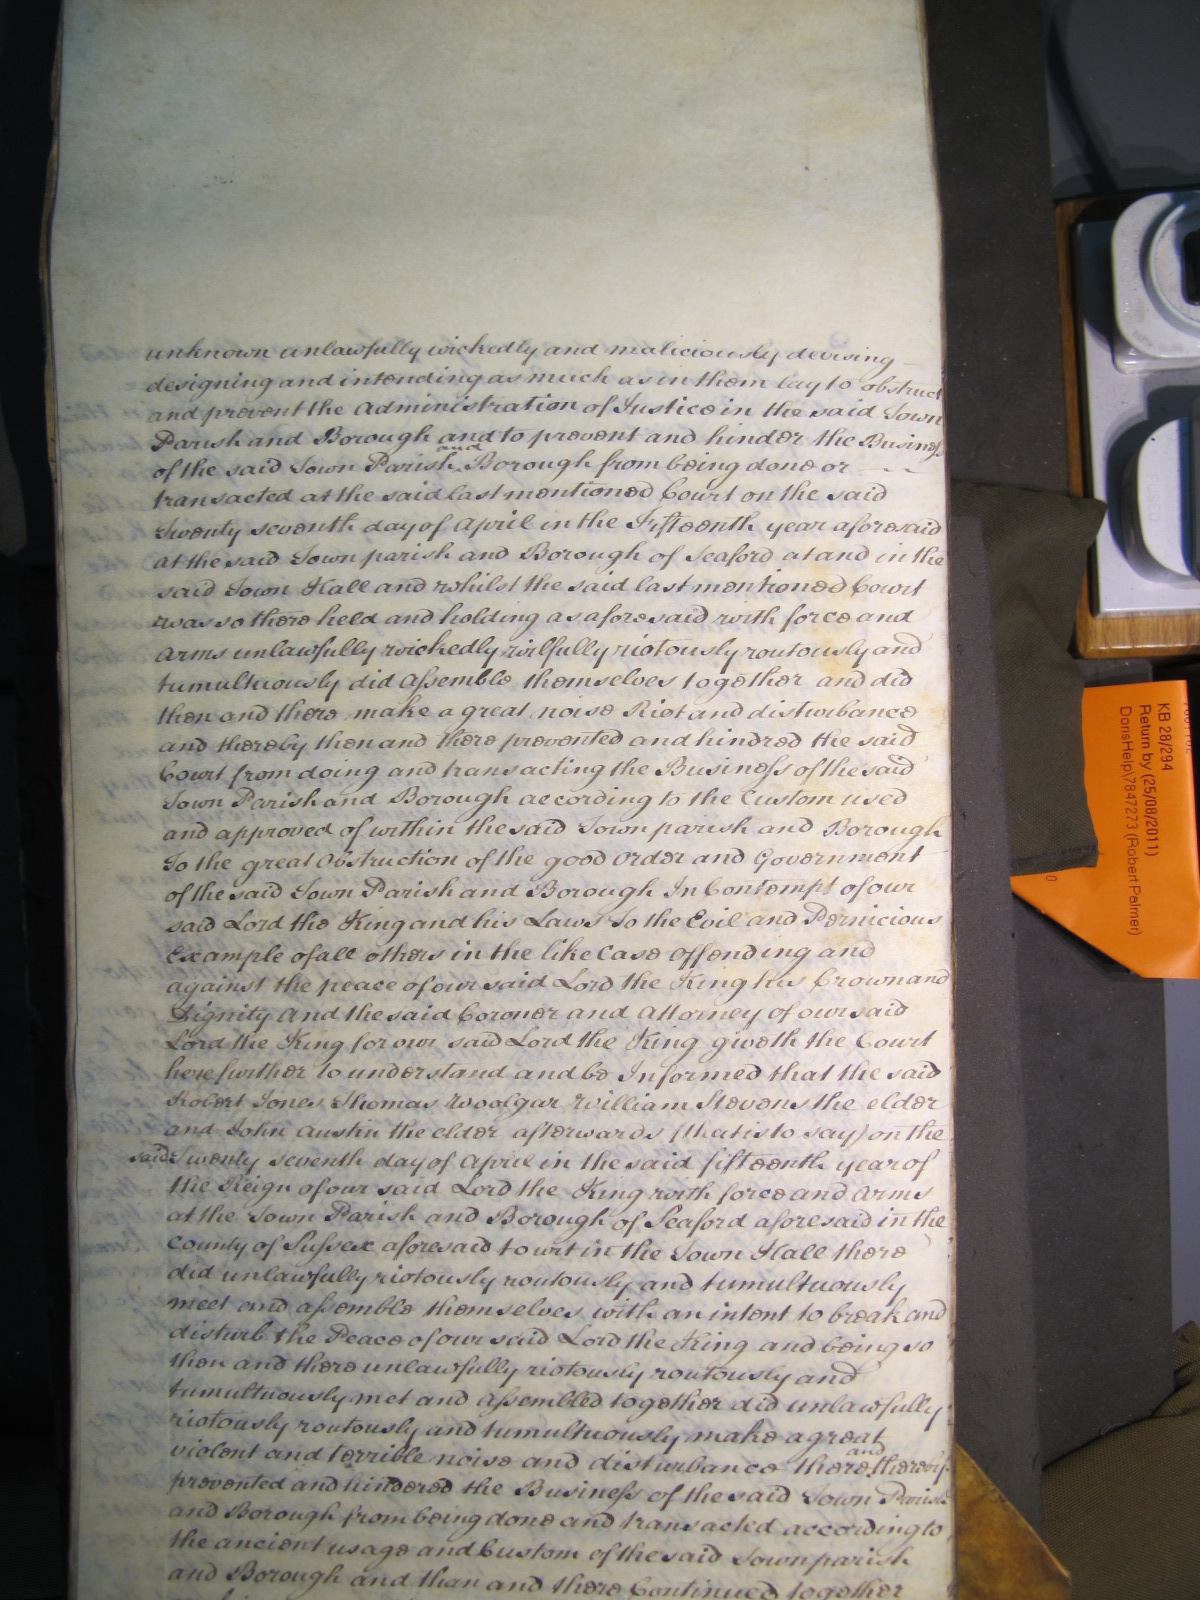 unknown unlawfully wickedly and maliciously devising
designing and intending as much as in them lay to obstruct
and prevent the Administration of Justice in the said Town
Parish and Borough and to prevent and hinder the Business
of the said Town Parish and Borough from being done or
transacted at the said last mentioned Court on the said
Twenty seventh day of April in the Fifteenth year aforesaid
at the said Town parish and Borough of Seaford at and in the
said Town Hall and whilst the said last mentioned Court
was so there held and holding as aforesaid with force and
Arms unlawfully wickedly wilfully riotously routously and
tumultuously did Assemble themselves together and did
then and there make a great noise Riot and disturbance
and thereby then and there prevented and hindred the said
Court from doing and transacting the Business of the said
Town Parish and Borough according to the Custom used
and approved of within the said Town parish and Borough
To the great Obstruction of the good Order and Government
of the said Town Parish and Borough In Contempt of our
said Lord the King and his Laws To the Evil and Pernicious
Example of all others in the like Case Offending and
against the peace of our said Lord the King his Crown and
Dignity And the said Coroner and Attorney of our said
Lord the King for our said Lord the King giveth the Court
here further to understand and be Informed that the said
Robert Jones Thomas Woolgar William Stevens the elder
and John Austin the elder afterwards (that is to say) on the
said Twenty seventh day of April in the said fifteenth year of
the Reign of our said Lord the King with force and Arms
at the Town Parish and Borough of Seaford aforesaid in the
County of Sussex aforesaid to wit in the Town Hall there
did unlawfully riotously routously and tumultuously
meet and assemble themselves with an intent to break and
disturb the Peace of our said Lord the King and being so
then and there unlawfully riotously routously and
tumultuously met and Assembled together did unlawfully
riotously routously and tumultuously make a great
violent and terrible noise and disturbance there and thereby
prevented and hindered the Business of the said Town Parish
and Borough from being done and transacted according to
the ancient usage and Custom of the said Town parish
and Borough and then and there Continued together
KB 28/294
Return by (25/08/2011)
DorisHelp\7847273 (Robert Palmer)